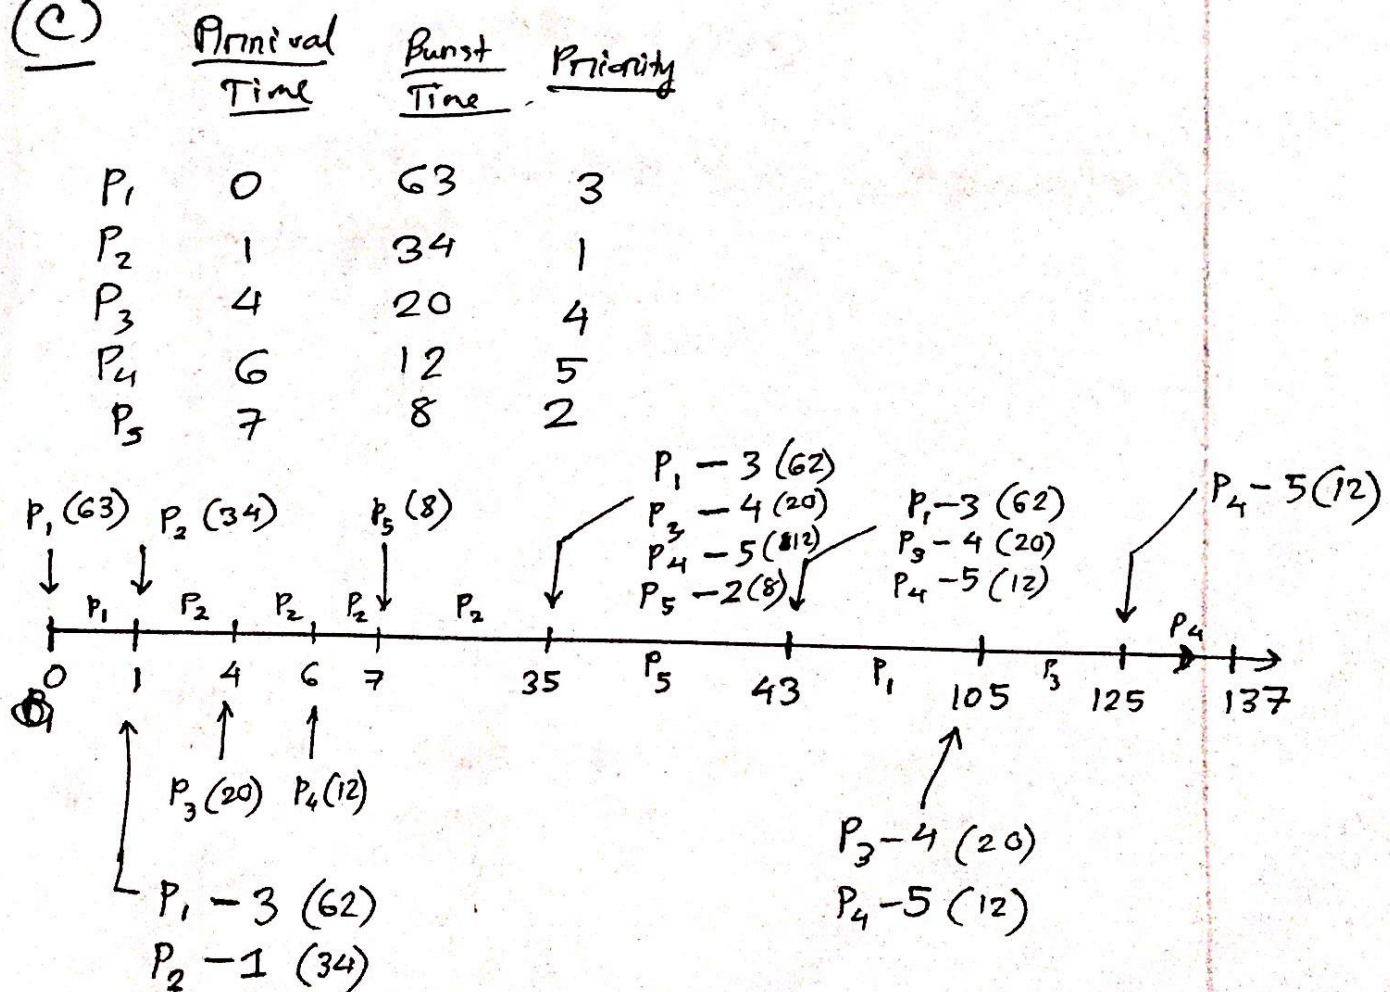 (C)
Arrival Time Burst Time Priority
P1 0 63 3
P2 1 34 1
P3 4 20 4
P4 6 12 5
P5 7 8 2
P1 (63) P2 (34) P5 (8)
P1 - 3 (62)
P3 - 4 (20)
P4 - 5 (12)
P5 - 2 (8)
P1 - 3 (62)
P3 - 4 (20)
P4 - 5 (12)
P4 - 5 (12)
P1 P2 P2 P2 P2 P5 P1 P3 P4
0 1 4 6 7 35 43 105 125 137
P3 (20) P4 (12)
P1 - 3 (62)
P2 - 1 (34)
P3 - 4 (20)
P4 - 5 (12)